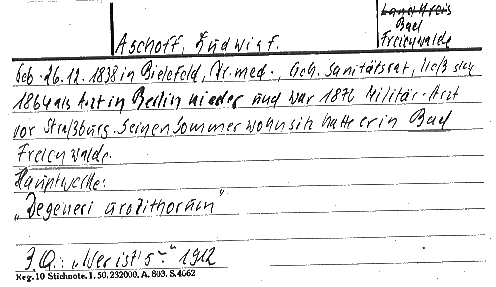 Landkreis
Bad
Freienwalde
Aschoff, Ludwig f.
Geb. 26.12.1838 in Bielefeld, Dr. med., Geh. Sanitätsrat, ließ sich
1864 als Arzt in Berlin nieder und war 1870 Militär-Arzt
vor Straßburg. Seinen Sommerwohnsitz hatte er in Bad
Freienwalde.
Hauptwerke:
"Degeneri urolithorum"
J.Q.: "Wer ist's" 1912
Reg. 10 Stichnote. 1. 50. 232000. A. 803. S. 4662